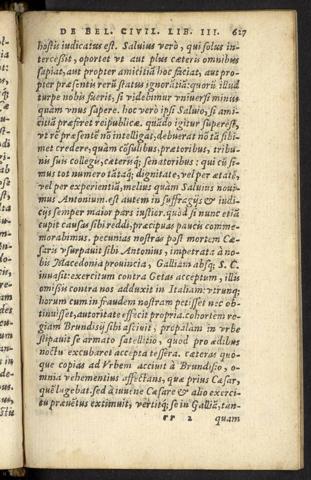 DE BEL. CIVIL. LIB. III. 627
hostis iudicatus est. Saluius verò, qui solus in-
tercessit, oportet vt aut plus cæteris omnibus
sapiat, aut propter amicitiā hoc faciat, aut pro-
pter præsentis rerū status ignorātiā: quorū illud
turpe nobis fuerit, si videbimur vniuersi minus
quàm vnus sapere. hoc verò ipsi Saluio, si ami-
citiā præfiret reipublicæ. quādo igitur superest,
vt rē præsentē nō intelligat, debuerat nō tā sibi-
met credere, quàm cōsulibus, prætoribus, tribu-
nis suis collegis, cæterisq; senatoribus: qui cū si-
mus tot numero tātaq; dignitate, vel per ætatē,
vel per experientiā, melius quàm Saluius noui-
mus Antonium. est autem in suffragijs & iudi-
cijs semper maior pars iustior. quod si nunc etiā
cupit causas sibi reddi, præcipuas paucis comme-
morabimus. pecunias nostras post mortem Cæ-
saris vsurpauit sibi Antonius, impetrata à no-
bis Macedonia prouincia, Galliam absq; S. C.
inuasit: exercitum contra Getas acceptum, illis
omissis contra nos adduxit in Italiam: vtrunq;
horum cum in fraudem nostram petisset nec ob-
tinuisset, autoritate effecit propria. cohortem re-
giam Brundisij sibi asciuit, propàlam in vrbe
stipauit se armato satellitio, quod pro ædibus
noctu excubaret accepta tessera. cæteras quo-
que copias ad Vrbem acciuit à Brundisio, o-
mnia vehementius affectans, quæ prius Cæsar,
quē lugebat. sed à iuuene Cæsare & alio exerci-
tu præuētus extimuit, vertitq; se in Galliā, tan-
rr 2 quam